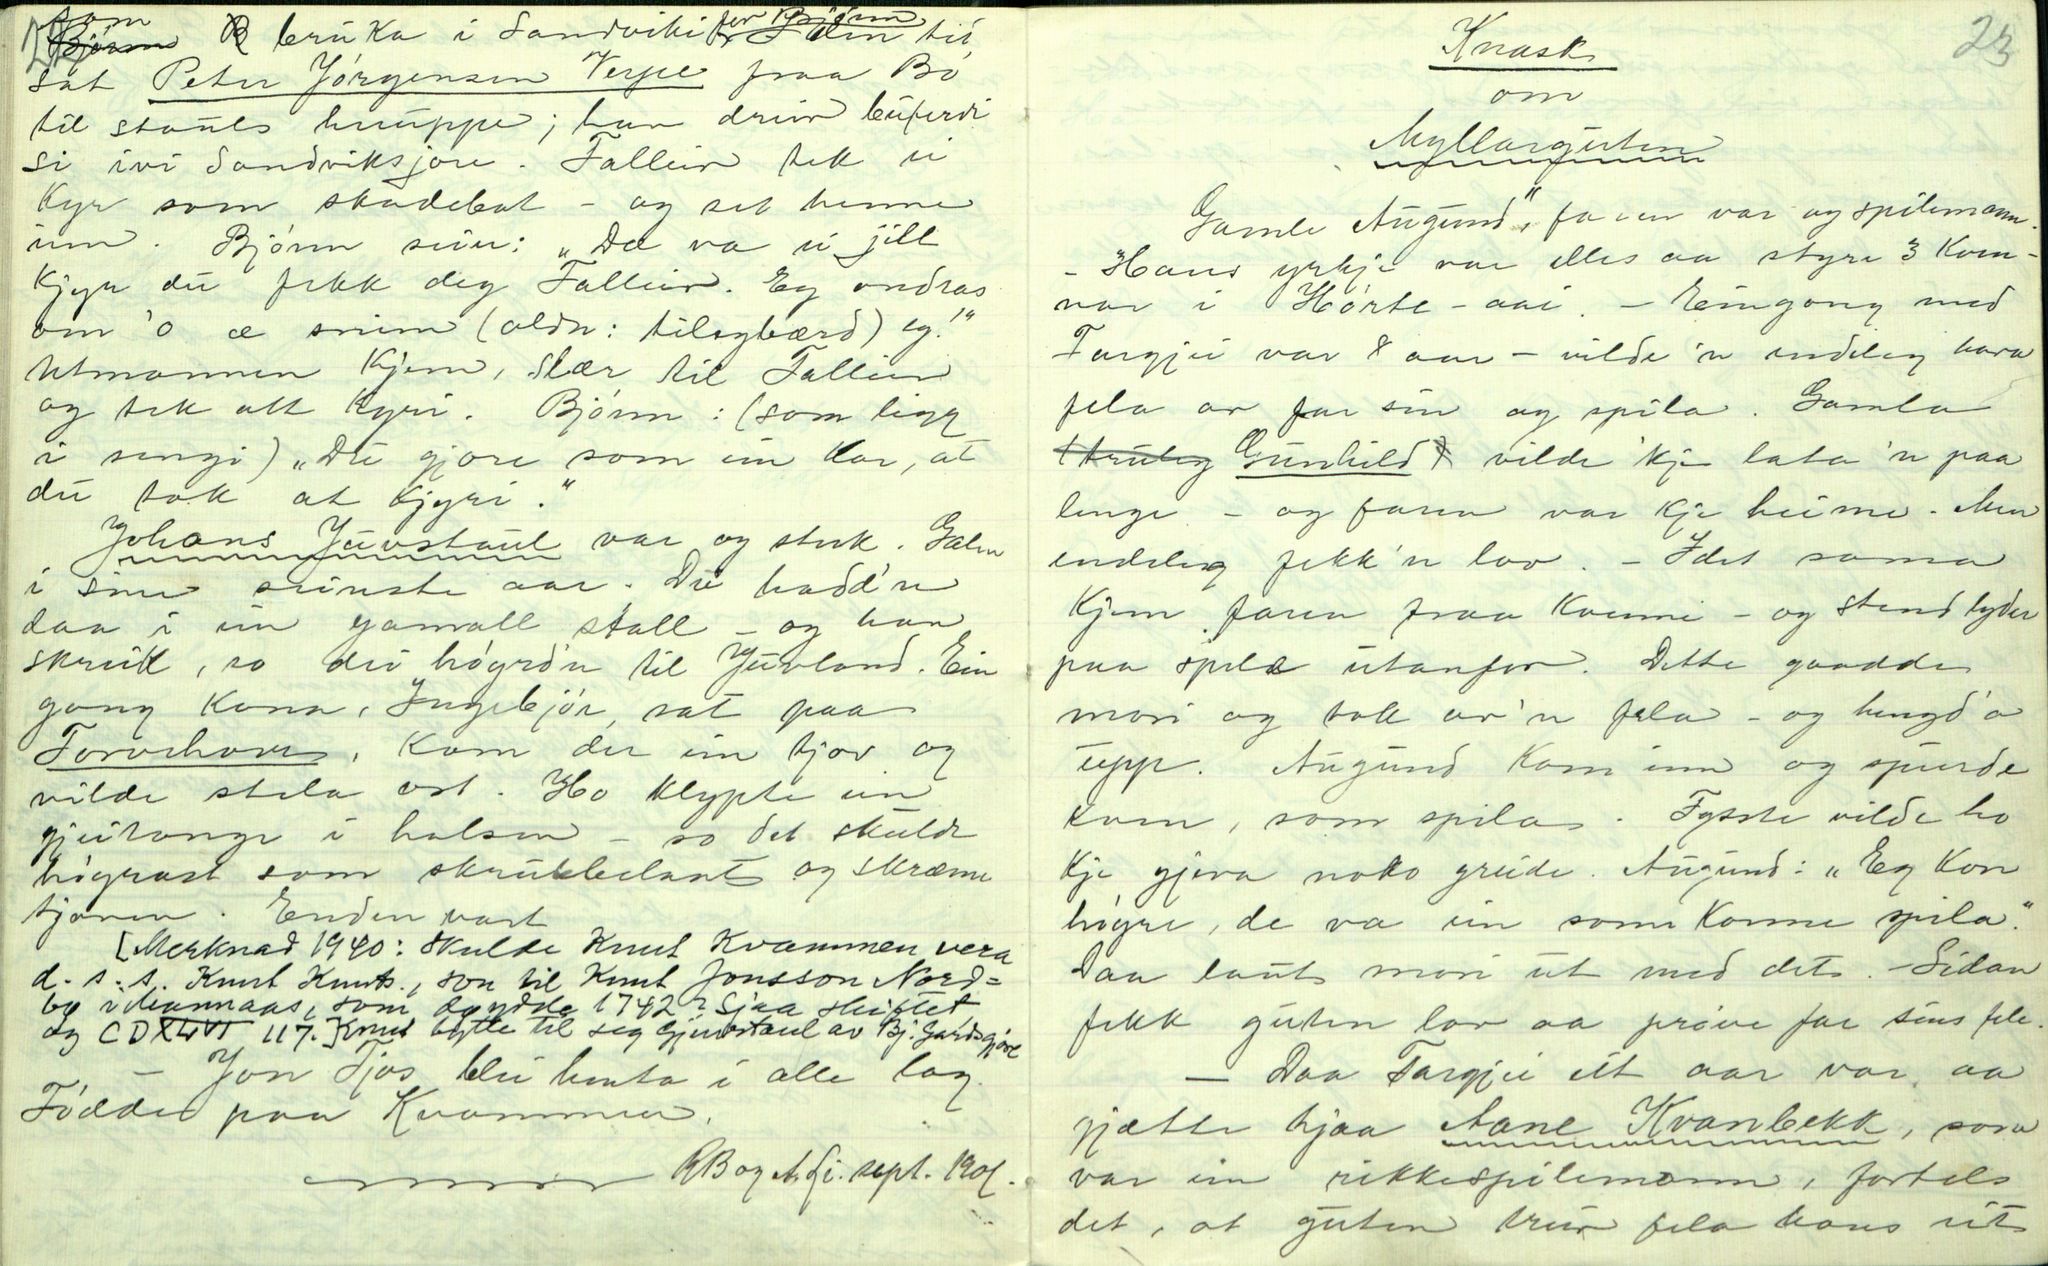 som
Björnn bruka i Sandviki för Björnn til
sat Peter Jörgensen Verpe fraa Bö
til stauls huuppe; han dreiv buferdi
si ivi Sandviksjore. Falleiv tek ei
kyr som skadebot - og set henne
inn. Björnn seier: „Da va ei jill
kjyr du fekk deg Falleiv. Eg ondras
om 'o æ snim (aldr: tilsgbærd) eg!"
Utmannen kjem, slær til Falleiv
og tek att kyri. Björnn: (som ligg
i sengi) „Du gjore som ein kar, at
du tok at kjyri."
Johans Juvstaul var og sterk. Galen
i sine seinste aar. Dei hadd'n
daa i ein gamall stall - og han
skreik, so dei högrd'n til Juvland. Ein
gong kona, Ingebjör, sat paa
Torvehovs, kom der ein tjov og
vilde stela ost. Ho klypte ein
gjeitunge i halsen - so det skulde
högrast som skrubbelant og skræme
tjoven. Enden vart
[Merknad 1940: Skulde Knut Kvammen vera
d.s.s. Knut Knuts., son til Knut Jonsson Nord=
bø i Mannaas, som døydde 1742? Sjaa skiftet
og CDXLVI 117.] Knut bytte til seg Gjuvstaul av Bj. Gardsgjorr
- Jon Tjos blei henta i alle lag.
Födde paa Kvammen.
RB og A. Li. sept. 1901.
23
Knask
om
Myllarguten
Gamle Augund", faren var og spilemann.
- Hans yrkje var elles aa styre 3 kvenn-
nar i Hörte-aai. - Eingong med
Targjei var 8 aar - vilde 'n endeleg hava
fela av far sin og spila. Gamla
(truleg Gunhild) vilde 'kje lata 'n paa
lenge - og faren var kje heime. Men
endeleg fekk'n lov. - I det sama
kjem faren fraa kvenni - og stend lyder
paa spelet utanfor. Dette gaadde
mori og tok av'n fela - og hengd'a
upp. Augund kom inn og spurde
kven, som spila. Fysste vilde ho
kje gjeva noko greide. Augund: „Eg kan
högre, de va ein som konne spila."
Daa laut mori ut med det. - Sidan
fekk guten lov aa pröve far sins fele.
- Daa Targjei eit aar var aa
gjætte hjaa Aane Kvanbekk, som
var ein rikkespilemann, fortels
det, at guten treiv fela hans ut